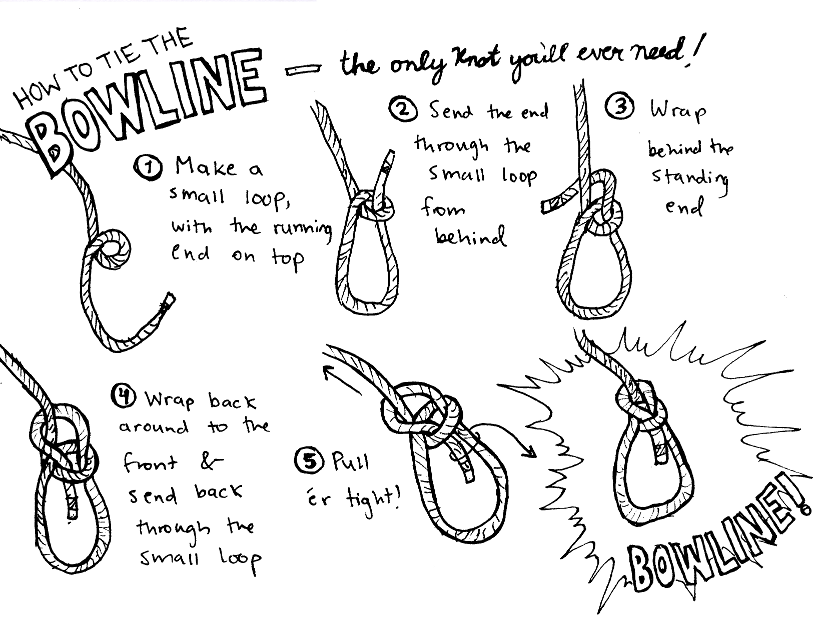 HOW TO TIE THE
BOWLINE — the only knot you'll ever need!
① Make a
small loop,
with the running
end on top
② Send the end
through the
small loop
from
behind
③ Wrap
behind the
standing
end
④ Wrap back
around to the
front &
send back
through the
small loop
⑤ Pull
'er tight!
BOWLINE!